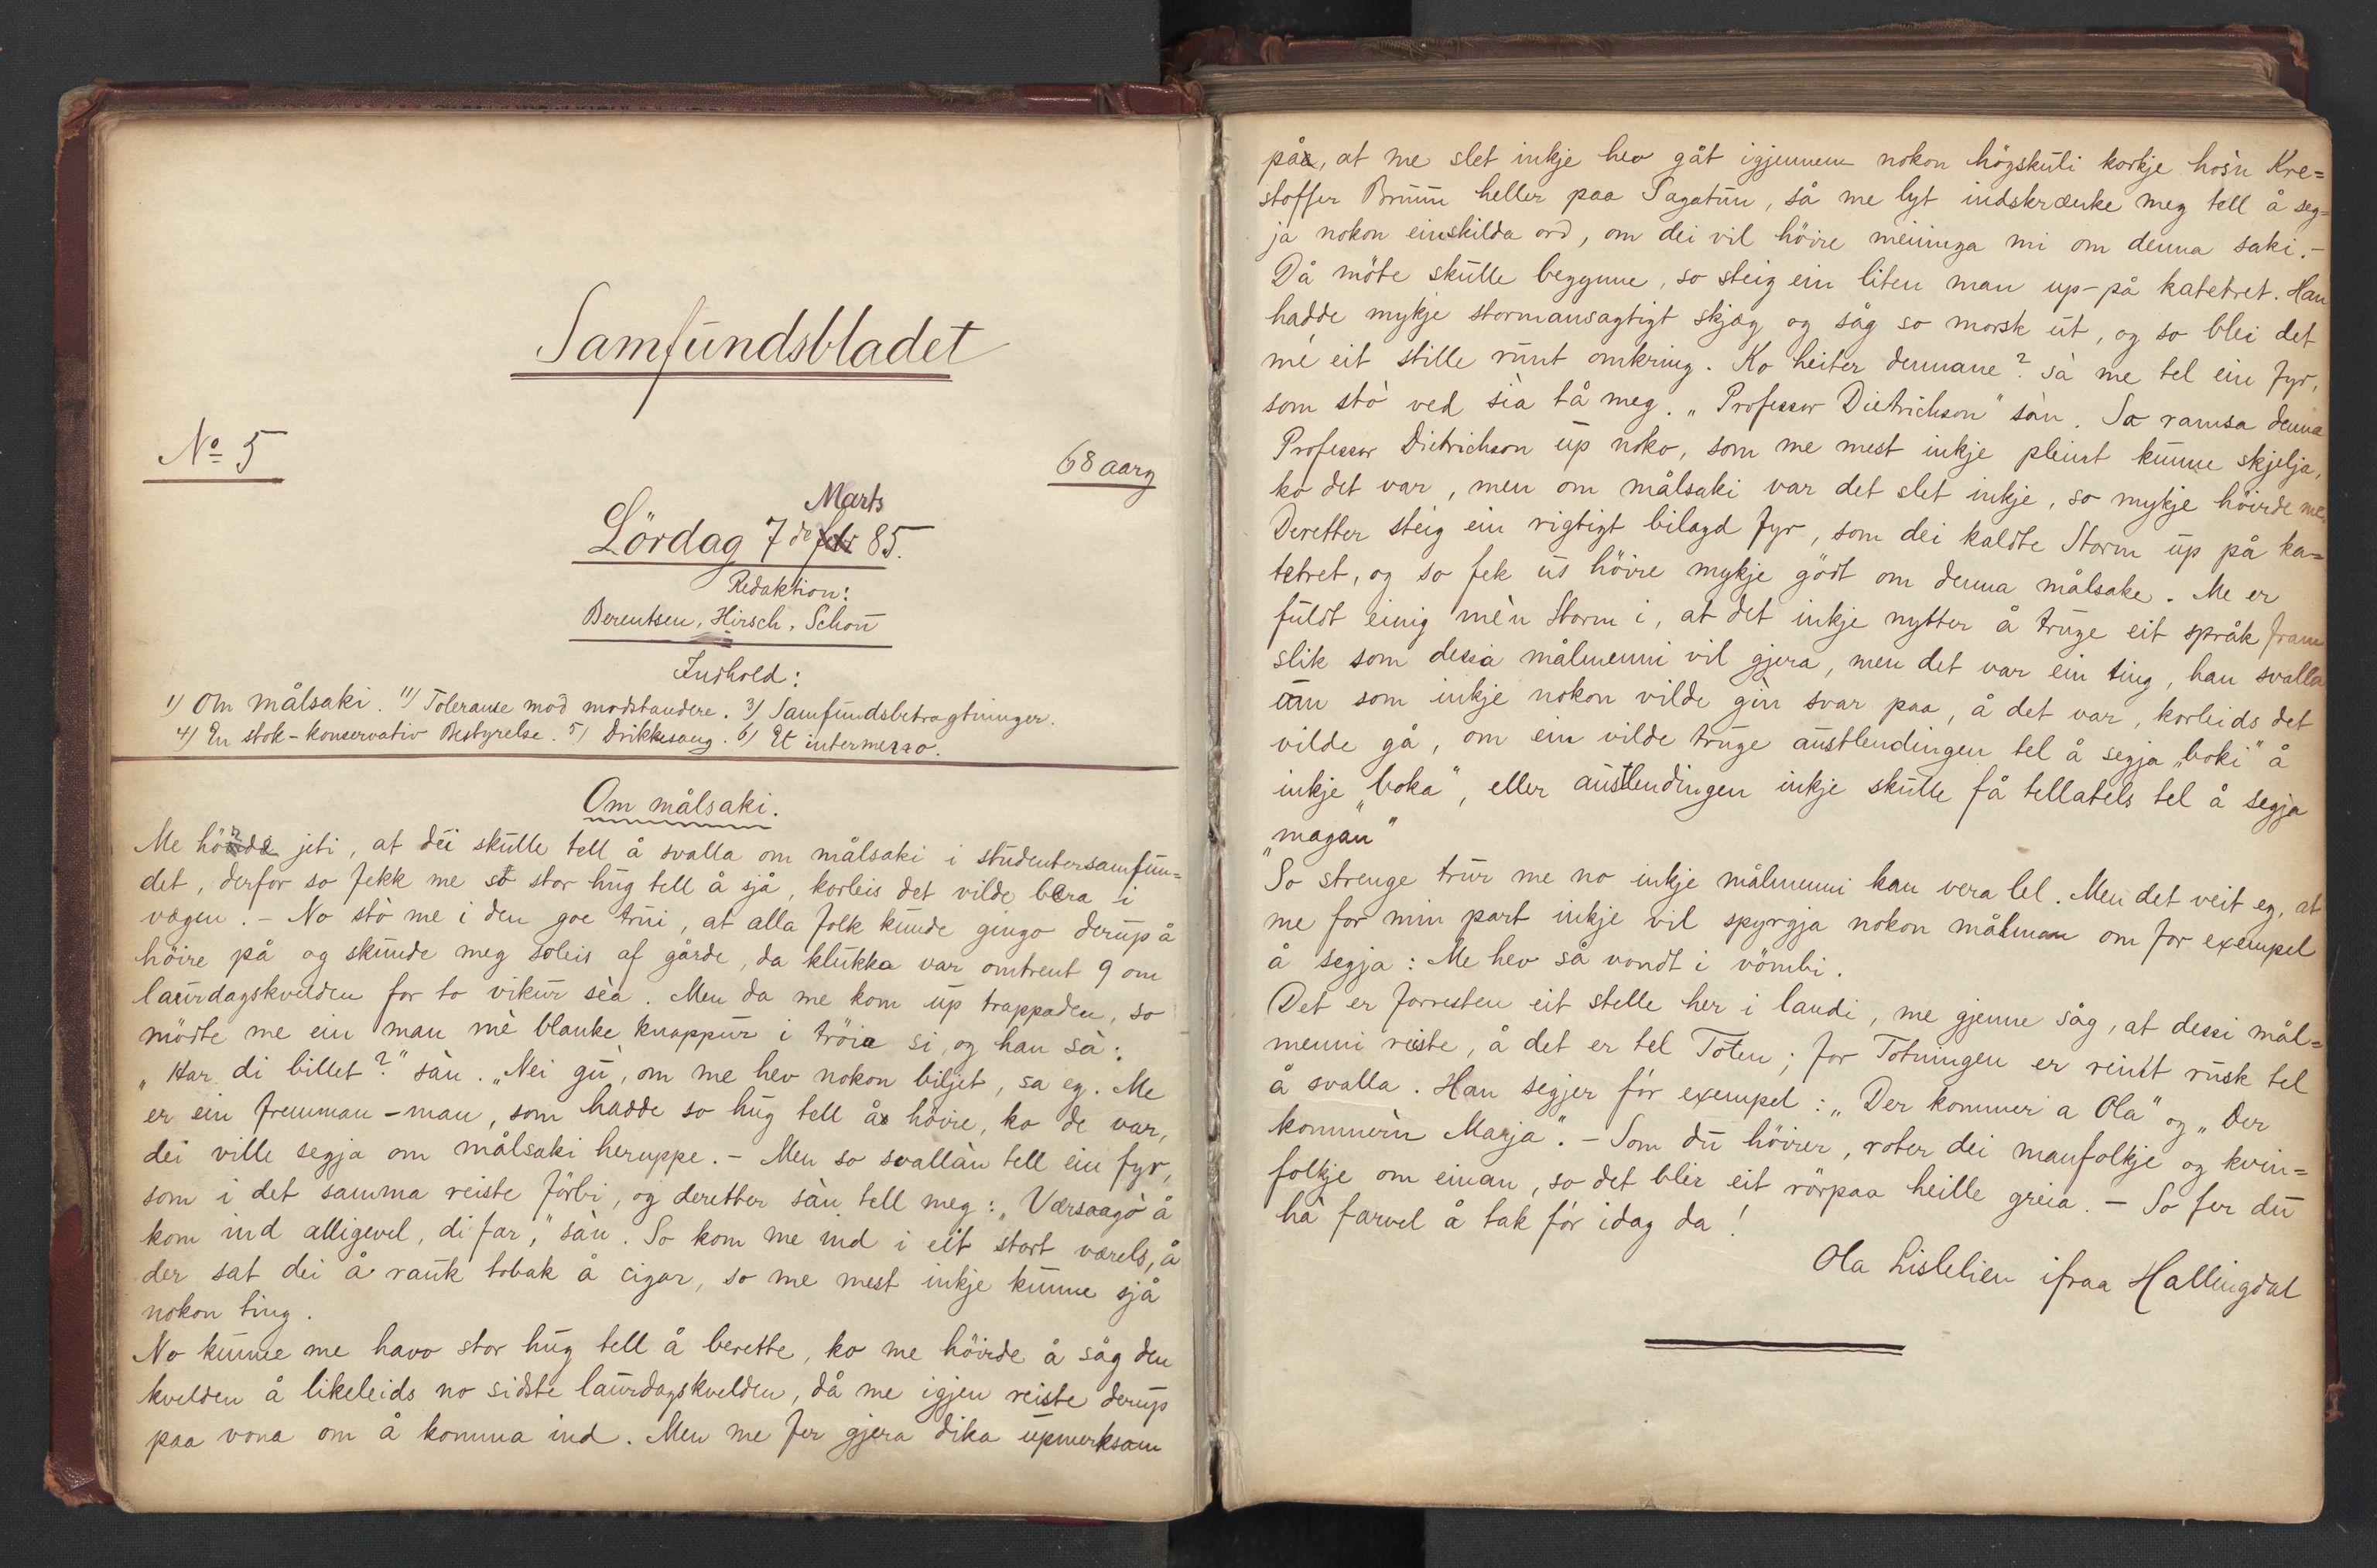 Samfundsbladet
No 5
68 aarg
Marts
Lördag 7de febr 85.
Redaktion:
Berentsen, Hirsch, Schou
Indhold:
1) Om målsaki. 11) Tolerance mod modstandere. 3) Samfundsbetragtninger.
4) En stok-konservativ Bestyrelse. 5) Drikkesang. 6) Et intermezzo.
Om målsaki.
Me hörde jeti, at dei skulle tell å svalla om målsaki i studentersamfun=
det, derfor so fekk me so stor hug tell å sjå, korleis det vilde bera i
vægen. – No stò me i den goe trui, at alla folk kunde gingo derup å
höire på og skunde meg soleis af gårde, da klukka var omtrent 9 om
laurdagskvelden for to vikur sèa. Men da me kom up trappaden, so
mödte me ein man mè blanke knappur i tröia si, og han sà:
„Har di billet?" sàn. „Nei gu, om me hev nokon biljet, sa eg. Me
er ein fremman-man, som hadde so hug tell å höire, ko de var,
dei ville segja om målsaki heruppe. – Men so svallàn tell ein fyr,
som i det samma reiste förbi, og deretter sàn tell meg: „Værsaagò å
kom ind alligevel, di far," sàn. So kom me ind i eit stort værels, å
der sat dei å rauk tobak å cigar, so me mest inkje kunne sjå
nokon ting.
No kunne me havo stor hug tell å berette, ko me höirde å såg den
kvelden å likeleids no sidste laurdagskvelden, då me igjen reiste derup
paa vona om å komma ind. Men me fer gjera dika upmerksam
på, at me slet inkje hev gåt igjennem nokon högskuli korkje hos'n Kre=
stoffer Bruun heller paa Sagatun, så me lyt indskrænke meg tell å seg=
ja nokon einskilda ord, om dei vil höire meininga mi om denna saki. –
Då möte skulle beggynne, so steig ein liten man up-på katetret. Han
hadde mykje stormansagtigt skjæg og såg so morsk ut, og so blei det
mè eit stille runt omkring. Ko heiter dennane? sà me tel ein fyr,
som stò ved sia tå meg. „Professor Dietrichson" sàn. So ramsa denna
Professor Dietrichson up noko, som me mest inkje pleint kunne skjelja,
ko det var, men om målsaki var det slet inkje, so mykje höirde me.
Deretter steig ein rigtigt bilagd fyr, som dei kaldte Storm up på ka=
tetret, og so fek us höire mykje gödt om denna målsake. Me er
fuldt einig mè'n Storm i, at det inkje nytter å truge eit språk fram
slik som dessa målmenni vil gjera, men det var ein ting, han svalla
um som inkje nokon vilde gin svar paa, å det var, korleids det
vilde gå, om ein vilde truge austlendingen tel å segja „boki" å
inkje „boka", eller austlendingen inkje skulle få tellatels tel å segja
„magan"
So strenge trur me no inkje målmenni kan vera lel. Men det veit eg, at
me for min part inkje vil spyrgja nokon målman om for exempel
å segja: Me hev så vondt i vömbi.
Det er forresten eit stelle her i landi, me gjenne såg, at dessi mål=
menni reiste, å det er tel Toten; for Totningen er reint rusk tel
å svalla. Han segjer fòr exempel: „Der kommer a Ola" og „Der
kommer'n Marja". – Som du höirer, roter dei manfolkje og kvin=
folkje om einan, so det blir eit rörpaa heille greia. – So fer du
hà farvel å tak fòr idag da!
Ola Lislelien ifraa Hallingdal